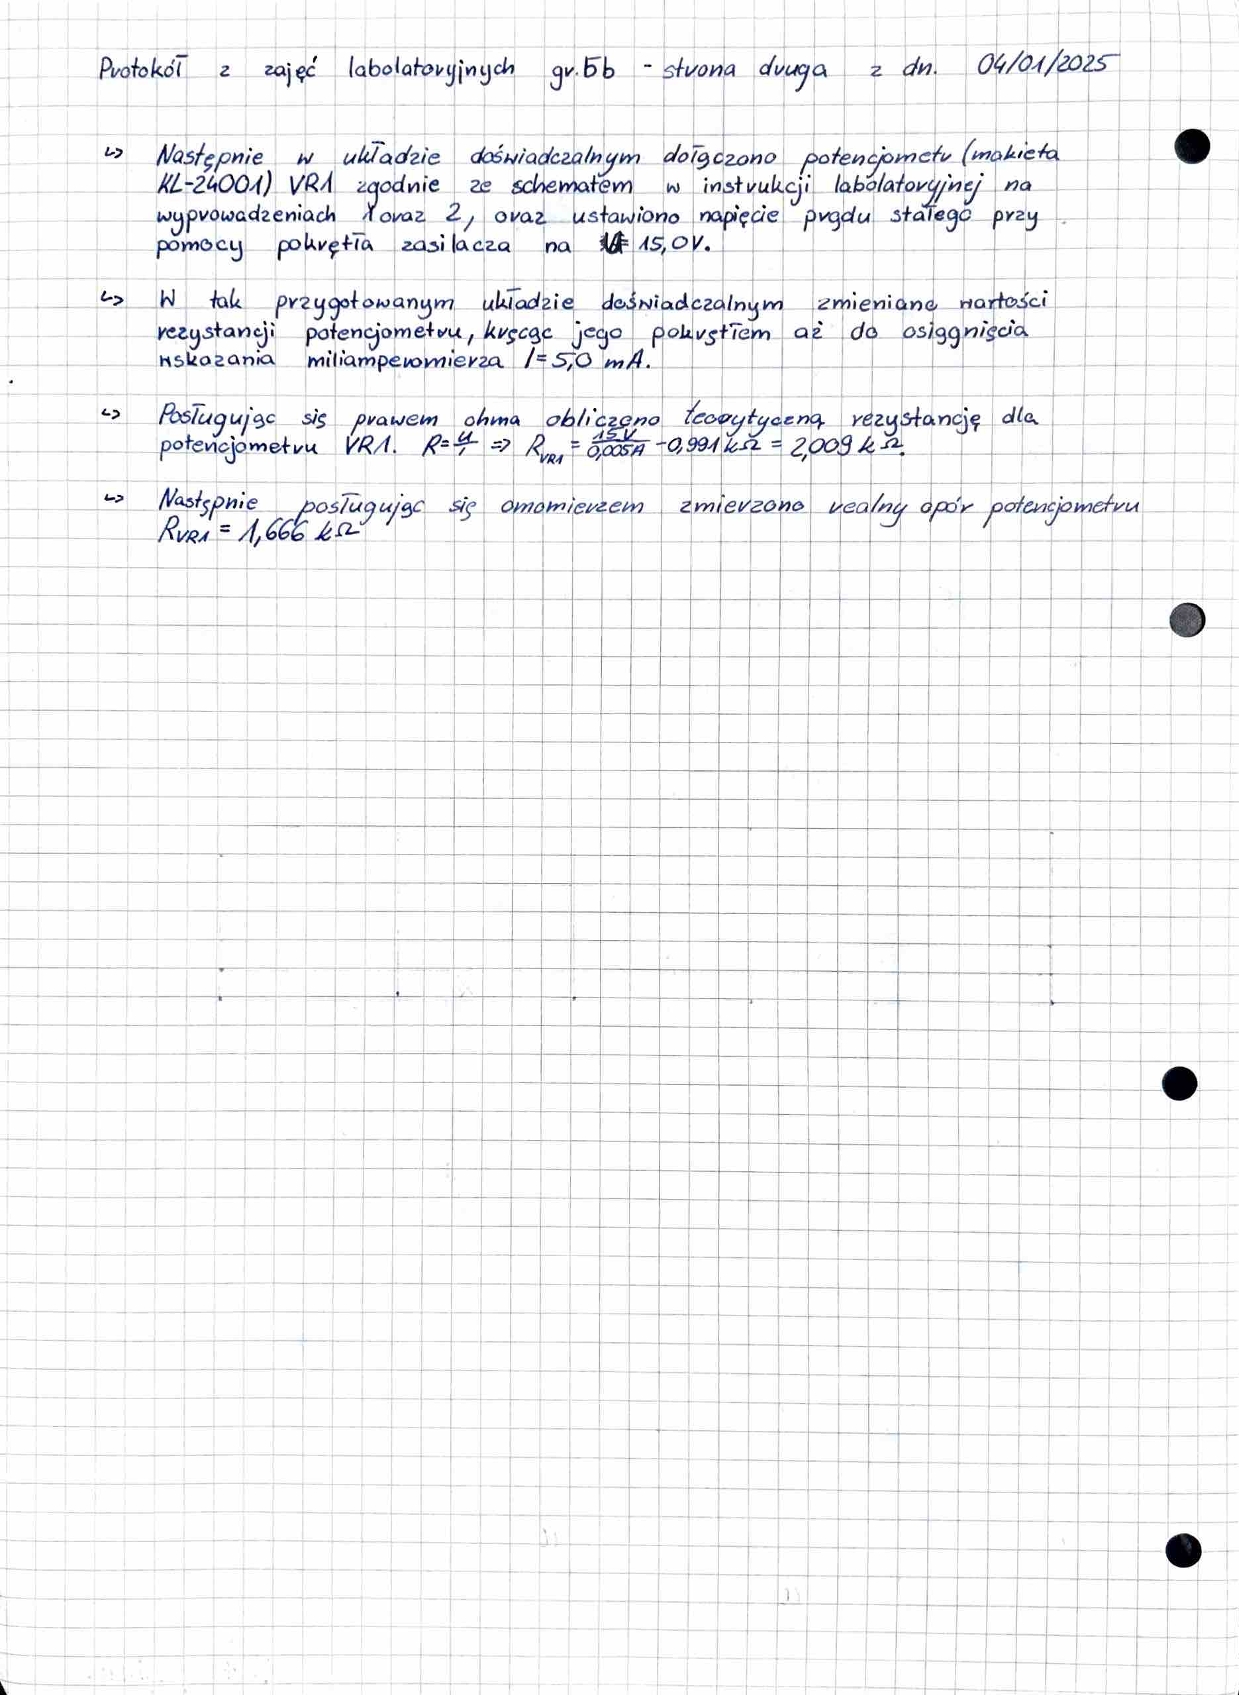 Protokół z zajęć labolatoryjnych gr.5b - strona druga z dn. 04/01/2025
↳ Następnie w układzie doświadczalnym dołączono potencjometr (makieta
KL-24001) VR1 zgodnie ze schematem w instrukcji labolatoryjnej na
wyprowadzeniach 1 oraz 2, oraz ustawiono napięcie prądu stałego przy
pomocy pokrętła zasilacza na 15,0V.
↳ W tak przygotowanym układzie doświadczalnym zmieniano wartości
rezystancji potencjometru, kręcąc jego pokrętłem aż do osiągnięcia
wskazania miliamperomierza I=5,0 mA.
↳ Posługując się prawem ohma obliczono teorytyczną rezystancję dla
potencjometru VR1. R=U/I => R_VR1 = 15V/0,005A -0,991kΩ = 2,009kΩ.
↳ Następnie posługując się omomierzem zmierzono realny opór potencjometru
R_VR1 = 1,666 kΩ